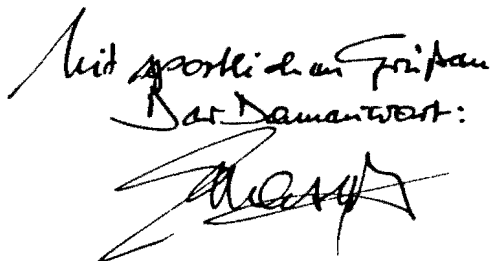 Mit sportlichen Grüßen
Der Damenwart: